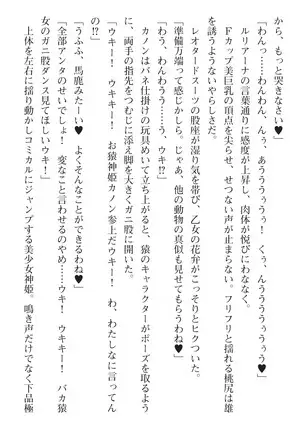 から、もっと哭きなさい♥」
「わんっ……わんわん、んぅ、あうううぅっ！　くぅ、んううううぅぅう♥」
ルリアーナの言葉通りに感度が上昇し、肉体が悦びにわななく。
Fカップ美巨乳の頂点を尖らせ、せつない声が止まらない。フリフリと揺れる桃尻は雄
を誘うようないやらしさだ。
レオタードスーツの股座が湿り気を帯び、乙女の花弁がこっそりとヒクついた。
「準備万端って感じかしら。じゃあ、他の動物の真似も見せてもらうわね♥」
「わう、わんわん、わうう……う、ウキ!?」
カノンはバネ仕掛けの玩具めいて立ち上がると、猿のキャラクターがポーズを取るよう
に、両手の指先をつむじに添え脚を大きくガニ股に開いた。
「ウキー！　ウキキー！　お猿神姫カノン参上だウキー！　わ、わたしなに言ってん
の!?」
「うふふ、馬鹿みたーい♥　よくそんなことができるわね♥」
「全部アンタのせいでしょ！　変なこと言わせるのやめ……ウキー！　ウキキー！　バカ猿
女のガニ股ダンス見てほしいウキ！」
上体を左右に揺り動かしコミカルにジャンプする美少女神姫。鳴き声だけでなく下品極